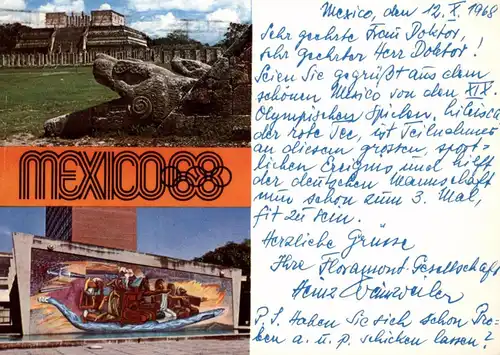 MEXICO68
Mexico, den 12. X. 1968
Sehr geehrte Frau Doktor,
sehr geehrter Herr Doktor!
Seien Sie gegrüßt aus dem
schönen Mexico von den XIX.
Olympischen Spielen, hibisia
der rote Tee, ist Teilnehmer
an diesem grossen, sport-
lichen Ereignis und hilft
der deutschen Mannschaft
nun schon zum 3. Mal,
fit zu sein.
Herzliche Grüsse
Ihre Floramont-Gesellschaft
Heinz
P.S. Haben Sie sich schon Pro-
ben a. u. p. schicken lassen?